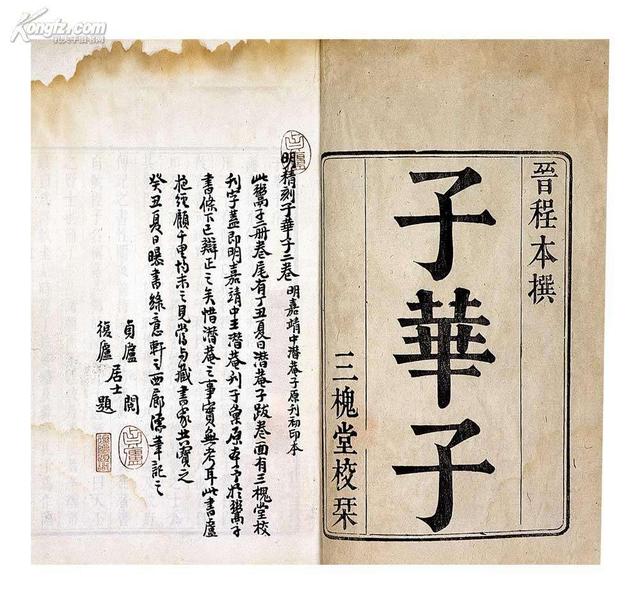 Kongfz.com
孔夫子旧书网
晉程本撰
子華子
三槐堂校栞
明精刻子華子二卷 明嘉靖中潛菴子原刊初印本
此鬻子二册卷尾有丁丑夏日潛菴子跋卷面有三槐堂校
刊字蓋即明嘉靖中王潛菴刊于彙原本予於鬻子
書條下已辯正之矣惜潛菴之事實無考耳此書盧
抱經顧千里均未之見當与藏書家共寶之
癸丑夏日曝書綠意軒之西廊濡筆記之
貞廬閱
復廬居士題